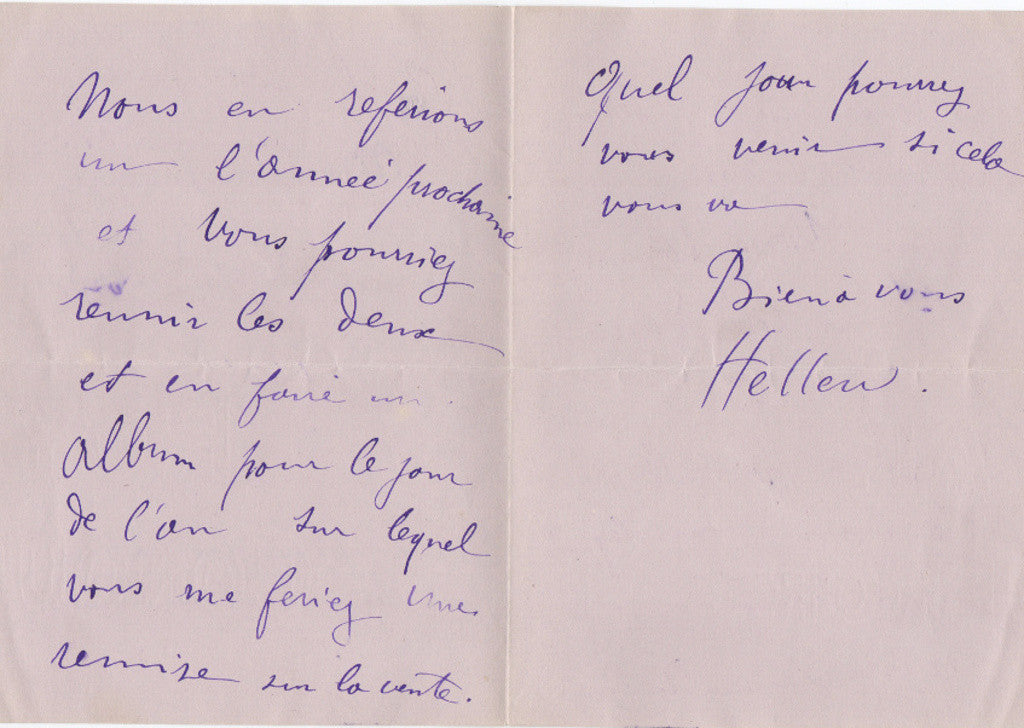 Nous en referions
un l'année prochaine
et Vous pourriez
reunir les deux
et en faire un
album pour le jour
de l'an sur lequel
vous me feriez une
remise sur la vente.
Quel jour pourrez
vous venir si cela
vous va
Bien à vous
Helleu.